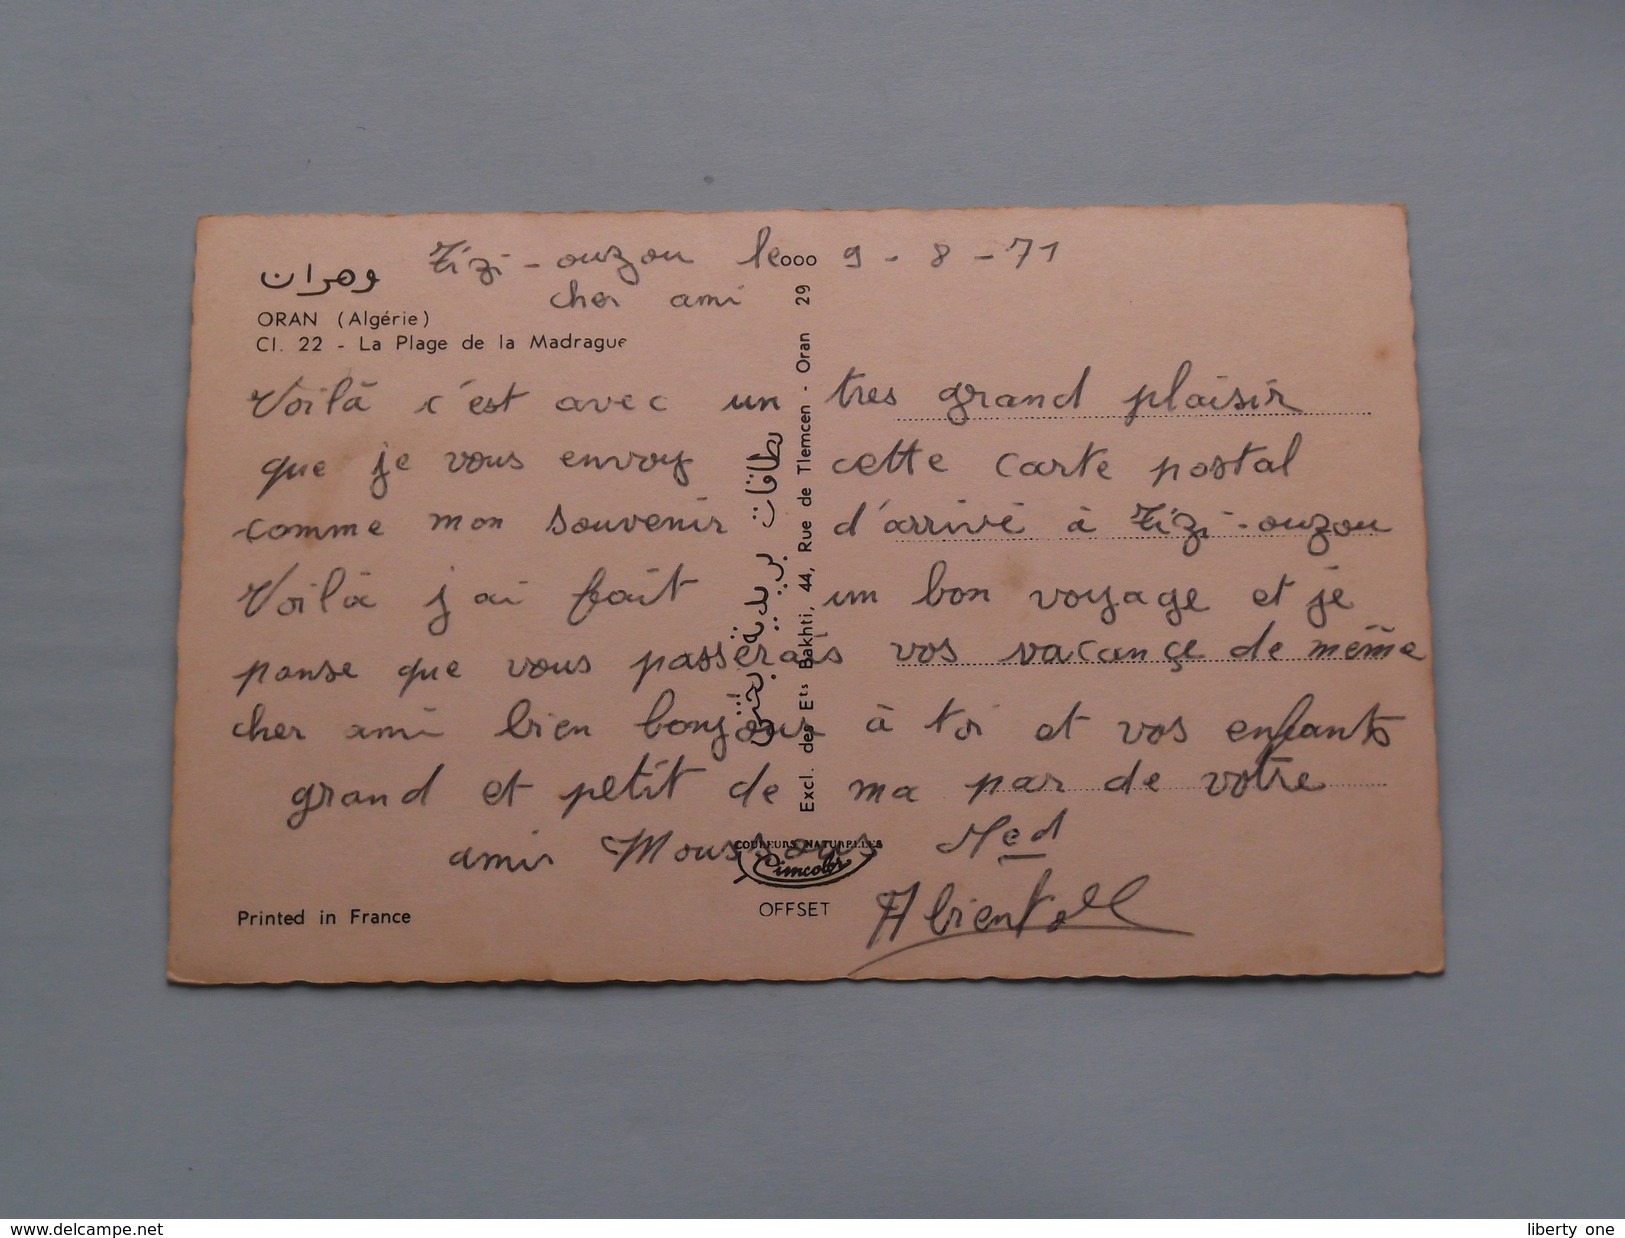 Tizi-ouzou le 9-8-71
وهران
cher ami
ORAN (Algérie)
Cl. 22 - La Plage de la Madrague
Voilà c'est avec un tres grand plaisir
que je vous envoy cette carte postal
comme mon souvenir d'arrivé à Tizi-ouzou
Voilà j'ai fait un bon voyage et je
panse que vous passerais vos vacançe de même
cher ami bien bonjour à toi et vos enfants
grand et petit de ma par de votre
amis Med
A bientot
بطاقات بريدية بختي
Excl. des Ets Bakhti, 44, Rue de Tlemcen - Oran 29 000
COULEURS NATURELLES
Cimcolor
OFFSET
Printed in France
www.delcampe.net
liberty one